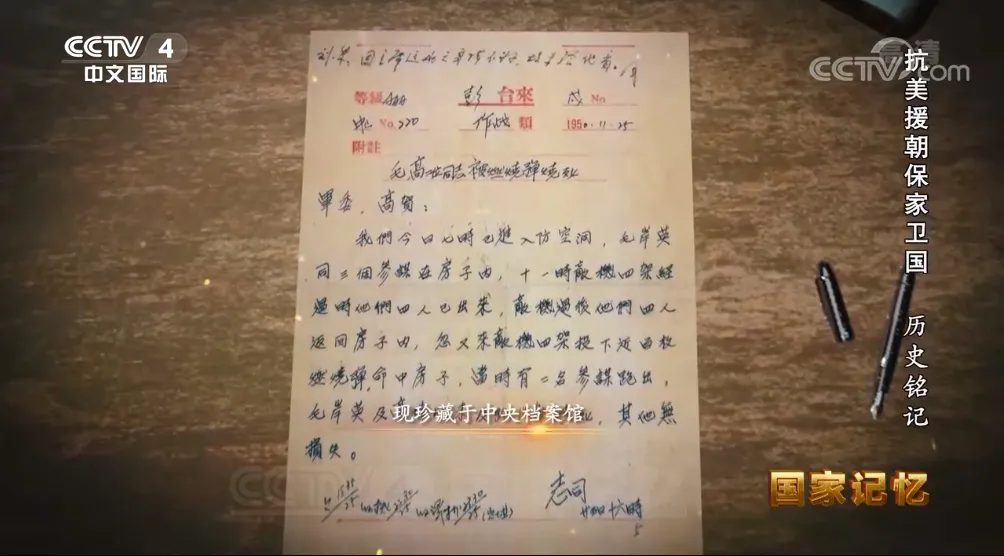 CCTV 4
中文国际
CCTV.com
高清
抗美援朝保家卫国 历史铭记
等級 台來 No
彭
No. 220 作战 類 1950.11.25
附註
毛高 同志被燃燒彈燒死
軍委、高賀：
我們今日七時已進入防空洞，毛岸英
同三個參謀在房子内，十一時敵機四架經
過時他們四人已出來，敵機過後他們四人
返回房子内，忽又來敵機四架投下近百枚
燃燒彈，命中房子，當時有二名參謀跑出，
毛岸英及高 ，其他無
損失。
志司
十六時
现珍藏于中央档案馆
国家记忆
CCTV.com